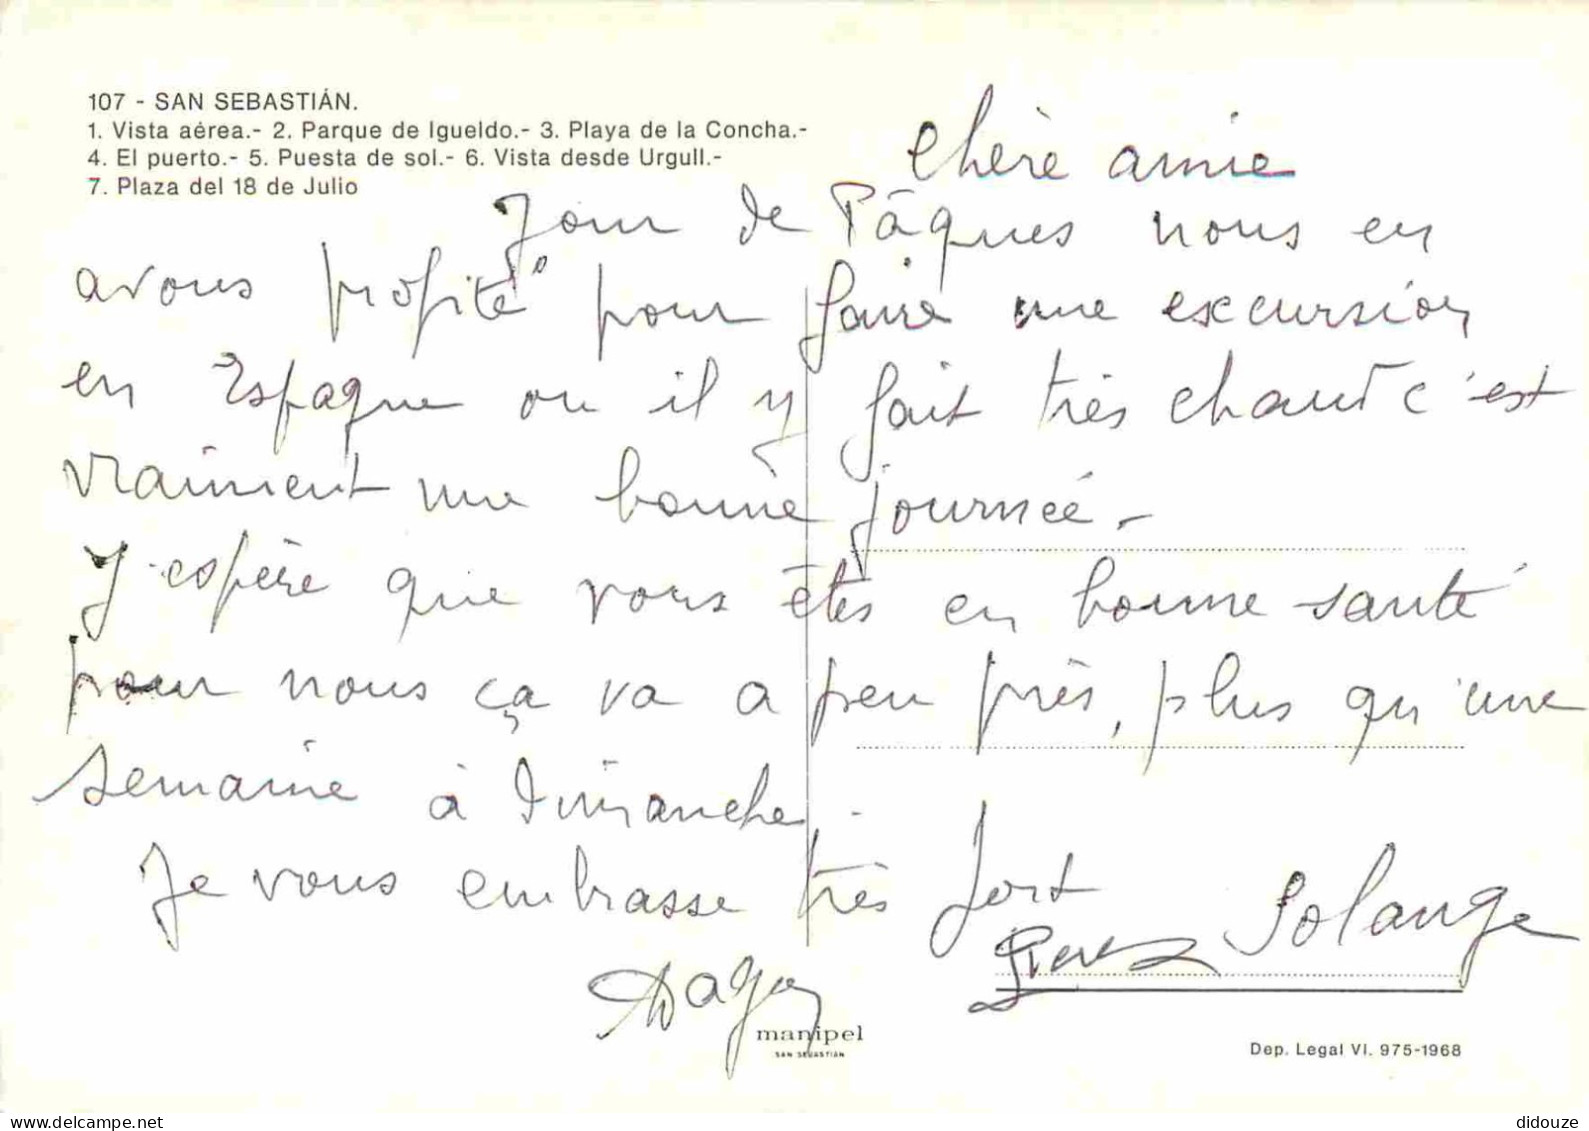 107 - SAN SEBASTIÁN.
1. Vista aérea.- 2. Parque de Igueldo.- 3. Playa de la Concha.-
4. El puerto.- 5. Puesta de sol.- 6. Vista desde Urgull.-
7. Plaza del 18 de Julio
Chère amie
Jour de Pâques nous en
avons profité pour faire une excursion
en Espagne ou il y fait très chaud c'est
vraiment une bonne journée -
J'espère que vous êtes en bonne santé
pour nous ça va a peu près, plus qu'une
semaine à dimanche.
Je vous embrasse très fort
Solange
manipel
SAN SEBASTIÁN
Dep. Legal VI. 975-1968
delcampe.net
didouze